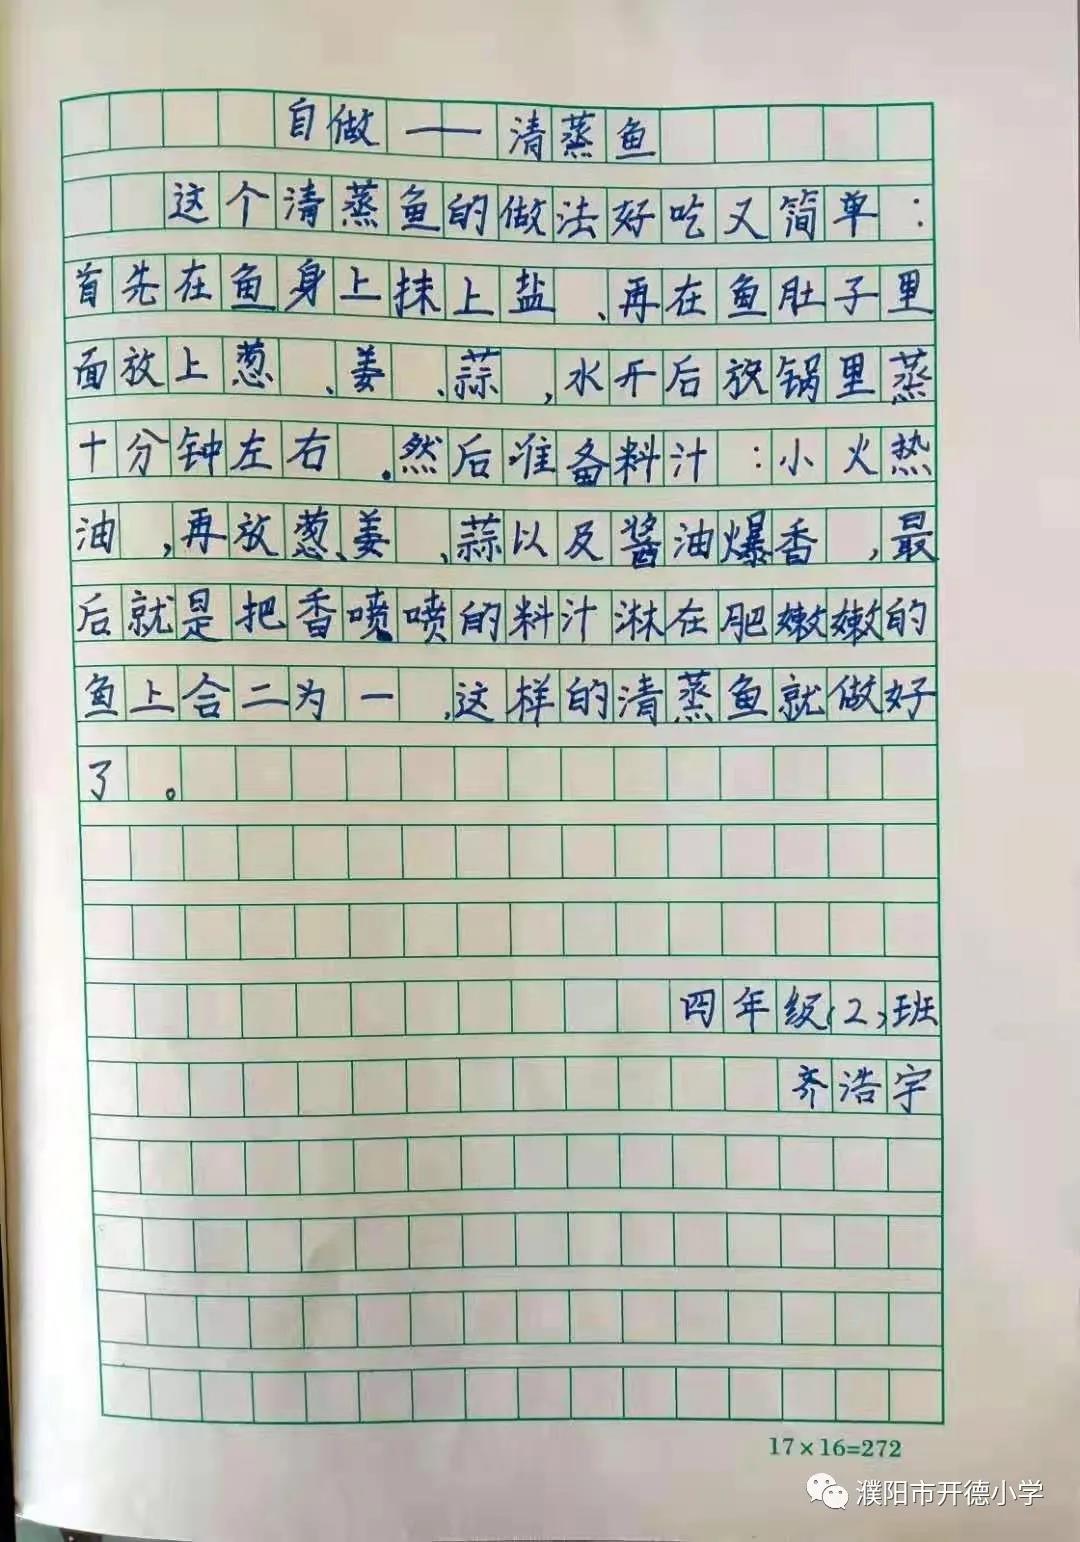 自做——清蒸鱼
这个清蒸鱼的做法好吃又简单：
首先在鱼身上抹上盐、再在鱼肚子里
面放上葱、姜、蒜，水开后放锅里蒸
十分钟左右。然后准备料汁：小火热
油，再放葱、姜、蒜以及酱油爆香，最
后就是把香喷喷的料汁淋在肥嫩嫩的
鱼上合二为一，这样的清蒸鱼就做好
了。
四年级（2）班
齐浩宇
17×16=272
濮阳市开德小学